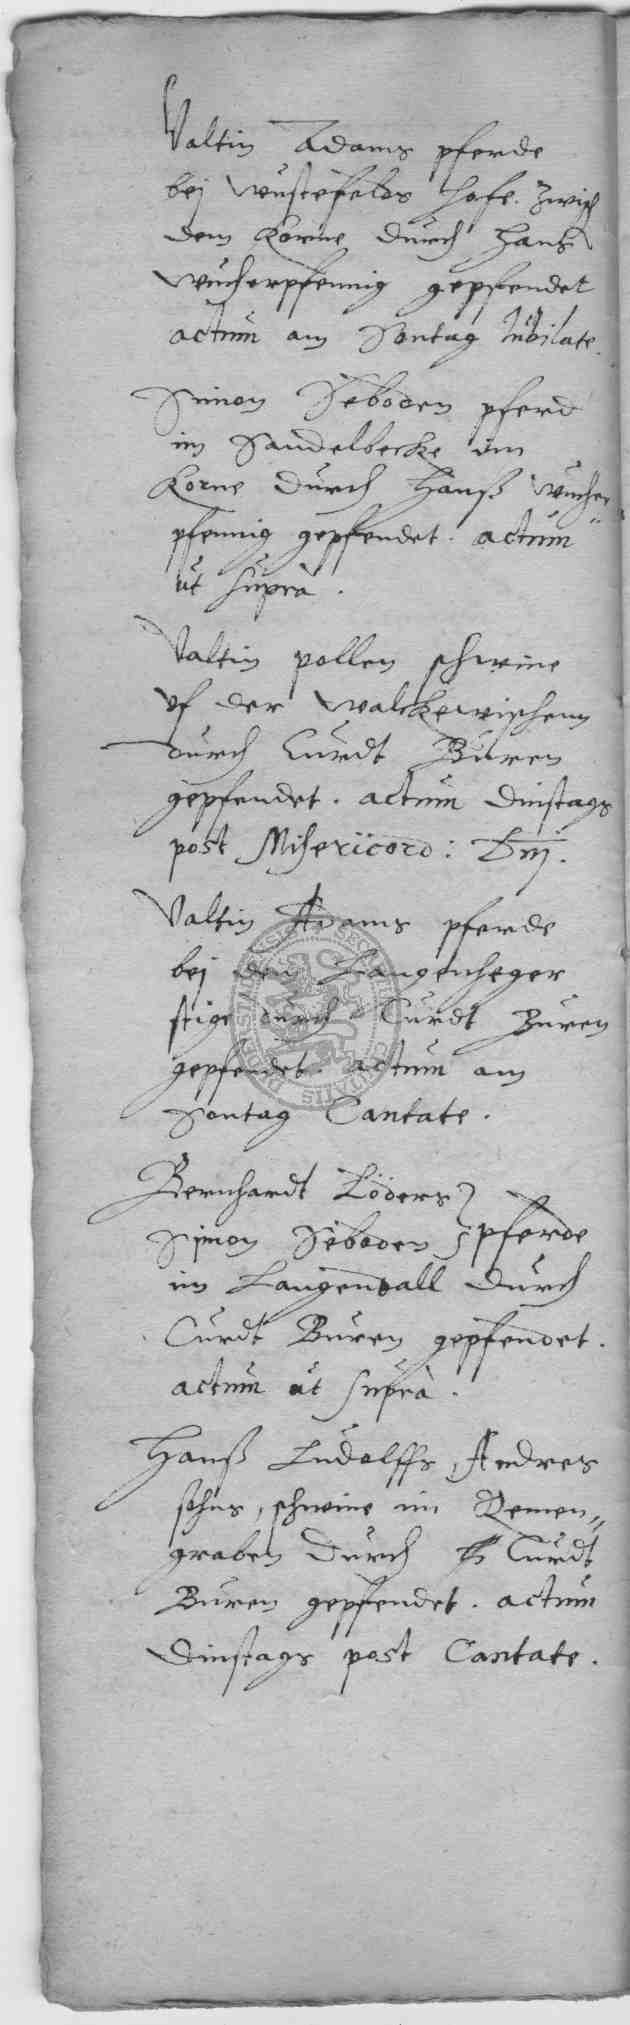 Valtin Adams pferde
bej Wustefelds hofe. Zwisch
dem Korne durch Hans
Wucherpfennig gepfendet
actum am Sontag Jubilate.
Simon Seboden pferd
im Sandelbecke im
Korne durch Hanß Wucher„
pfennig gepfendet. actum
ut suprà.
Valtin pollen schweine
vf der Walckewischenn
durch Curdt Buren
gepfendet. actum Dinstags
post Misericord: Dnj.
Valtin Adams pferde
bej dem Langenheger
stige durch Curdt Buren
gepfendet. actum am
Sontag Cantate.
Bernhardt Löders
Simon Seboden pferde
im Langendall durch
Curdt Buren gepfendet.
actum ut suprà.
Hanß Ludolffs, Andres
sohns, schweine im Remen„
graben durch Curdt
Buren gepfendet. actum
Dinstags post Cantate.